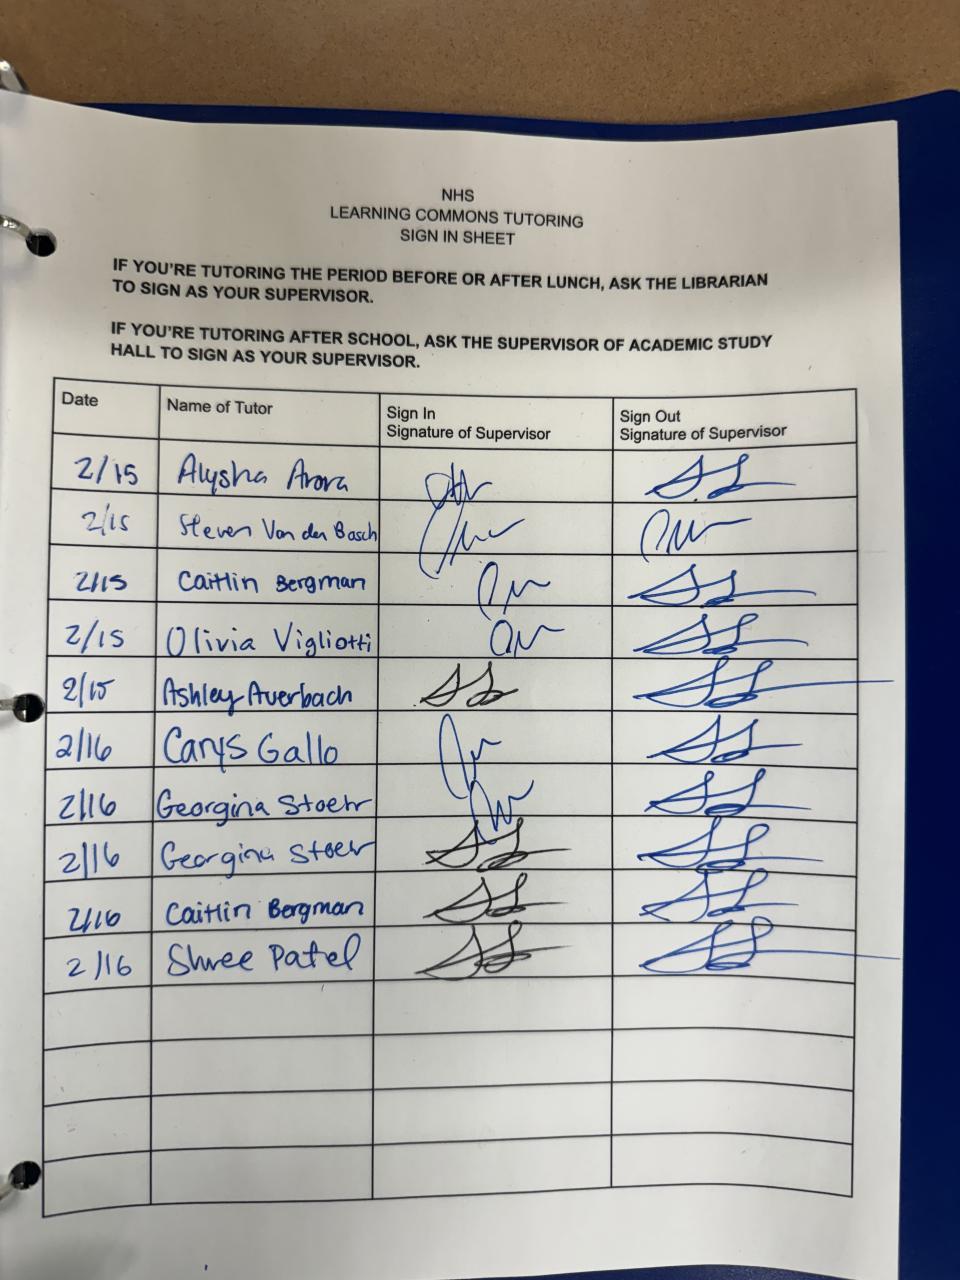 NHS
LEARNING COMMONS TUTORING
SIGN IN SHEET
IF YOU'RE TUTORING THE PERIOD BEFORE OR AFTER LUNCH, ASK THE LIBRARIAN
TO SIGN AS YOUR SUPERVISOR.
IF YOU'RE TUTORING AFTER SCHOOL, ASK THE SUPERVISOR OF ACADEMIC STUDY
HALL TO SIGN AS YOUR SUPERVISOR.
Date Name of Tutor Sign In Sign Out
Signature of Supervisor Signature of Supervisor
2/15 Alysha Arora
2/15 Steven Van den Bosch
2/15 Caitlin Bergman
2/15 Olivia Vigliotti
2/15 Ashley Averbach
2/16 Carys Gallo
2/16 Georgina Stoehr
2/16 Georgina Stoehr
2/16 Caitlin Bergman
2/16 Shree Patel